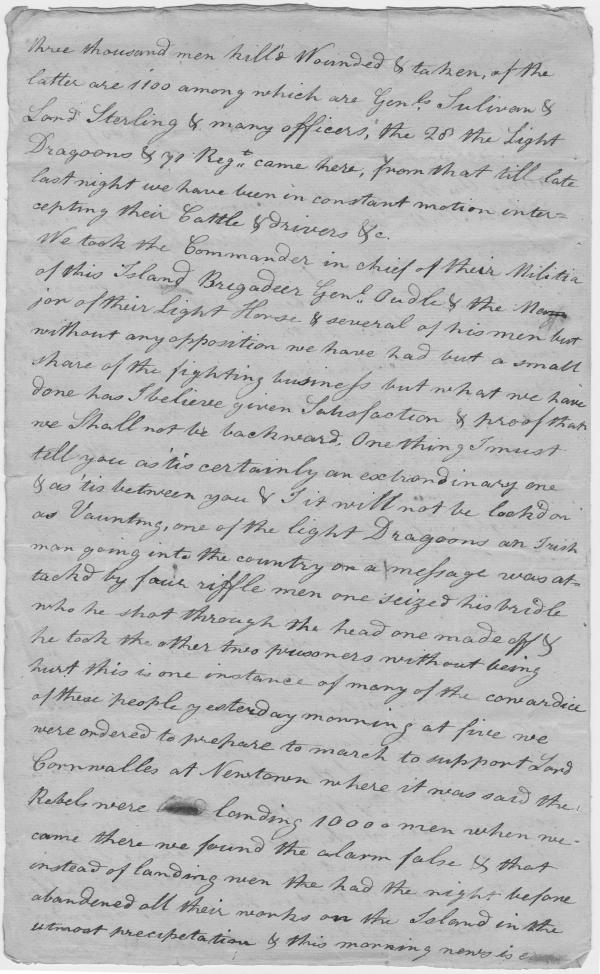 three thousand men kill'd Wounded & taken, of the
latter are 1100 among which are Genls. Sulivan &
Lord Sterling & many officers, the 28 the Light
Dragoons & 71 Regt. came here, from that till late
last night we have been in constant motion inter=
cepting their Cattle & drivers &c.
We took the Commander in chief of their Militia
of this Island Brigadeer Genl. Oudle & the Ma
jor of their Light Horse & several of his men but
without any opposition we have had but a small
share of the fighting business but what we have
done has I believe given Satisfaction & proof that
we Shall not be backward. One thing I must
tell you as 'tis certainly an extrordinary one
& as 'tis between you & I it will not be look'd on
as Vaunting, one of the light Dragoons an Irish
man going into the country on a message was at=
tackd by four riffle men one seized his bridle
who he shot through the head one made off &
he took the other two prisoners without being
hurt this is one instance of many of the cowardice
of these people yesterday morning at five we
were ordered to prepare to march to support Lord
Cornwalles at Newtown where it was said the
Rebels were landing 10000 men when we
came there we found the alarm false & that
instead of landing men the had the night before
abandened all their works on the Island in the
utmost precipetation & this morning news is